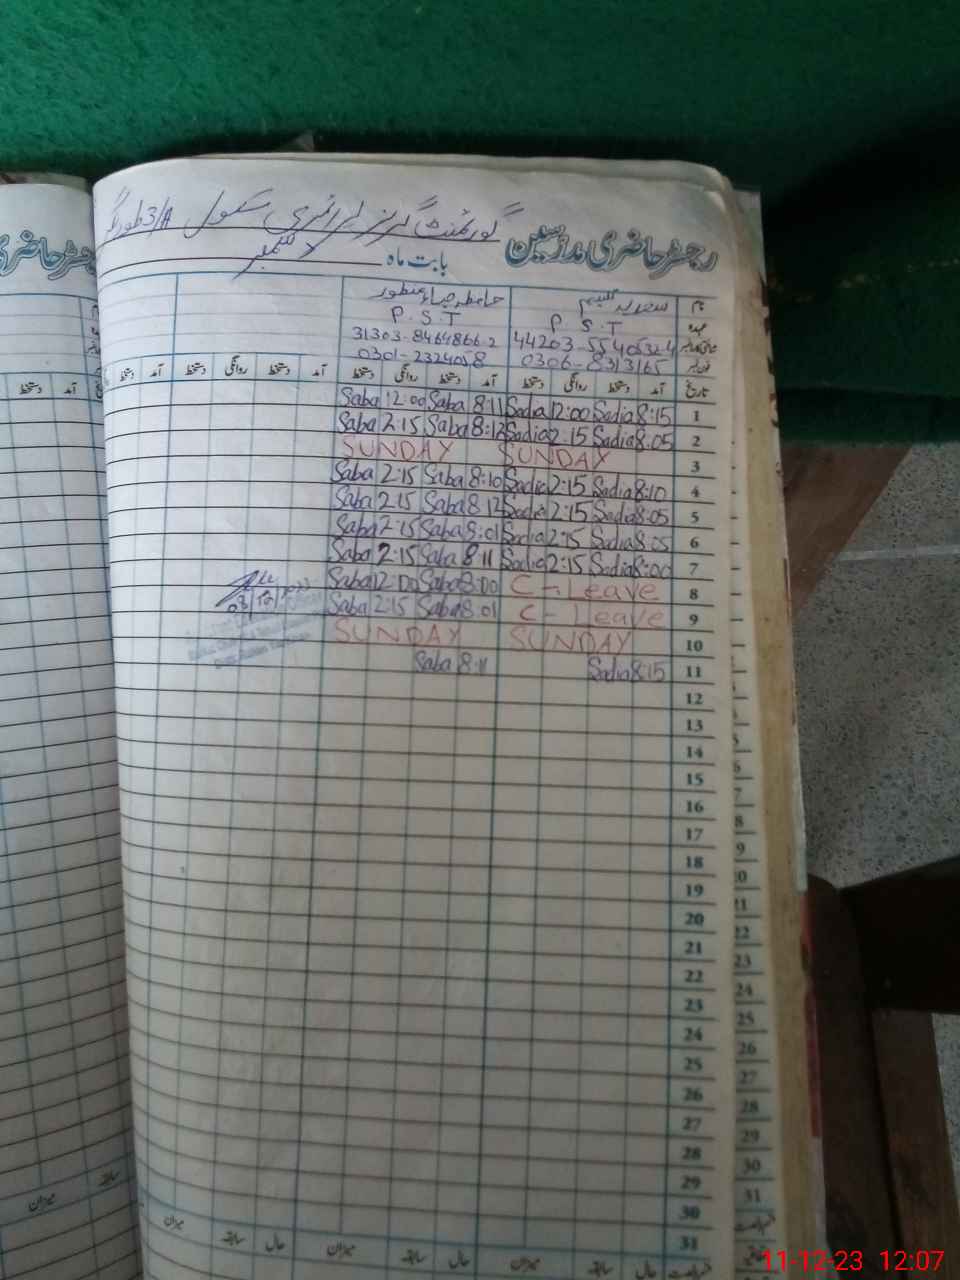 گورنمنٹ گرلز پرائمری سکول 3/A
رجسٹر حاضری مدرسین
بابت ماہ دسمبر
نام سعدیہ کلیم
عہدہ P.S.T P.S.T
44203-5540532-4 31303-8464866-2
0306-8313165 0301-2324058
تاریخ آمد دستخط روانگی دستخط آمد دستخط روانگی دستخط آمد دستخط روانگی دستخط آمد دستخط
1 8:15 Sadia 12:00 Sadia 8:11 Saba 12:00 Saba
2 8:05 Sadia 2:15 Sadia 8:12 Saba 2:15 Saba
3 SUNDAY SUNDAY
4 8:10 Sadia 2:15 Sadia 8:10 Saba 2:15 Saba
5 8:05 Sadia 2:15 Sadia 8:12 Saba 2:15 Saba
6 8:05 Sadia 2:15 Sadia 8:01 Saba 2:15 Saba
7 8:00 Sadia 2:15 Sadia 8:11 Saba 2:15 Saba
8 C-Leave 8:00 Saba 12:00 Saba
9 C-Leave 8:01 Saba 2:15 Saba
10 SUNDAY SUNDAY
11 8:15 Sadia 8:11 Saba
12
13
14
15
16
17
18
19
20
21
22
23
24
25
26
27
28
29
30
31
حال سابقہ میزان حال سابقہ میزان حال سابقہ میزان
11-12-23 12:07